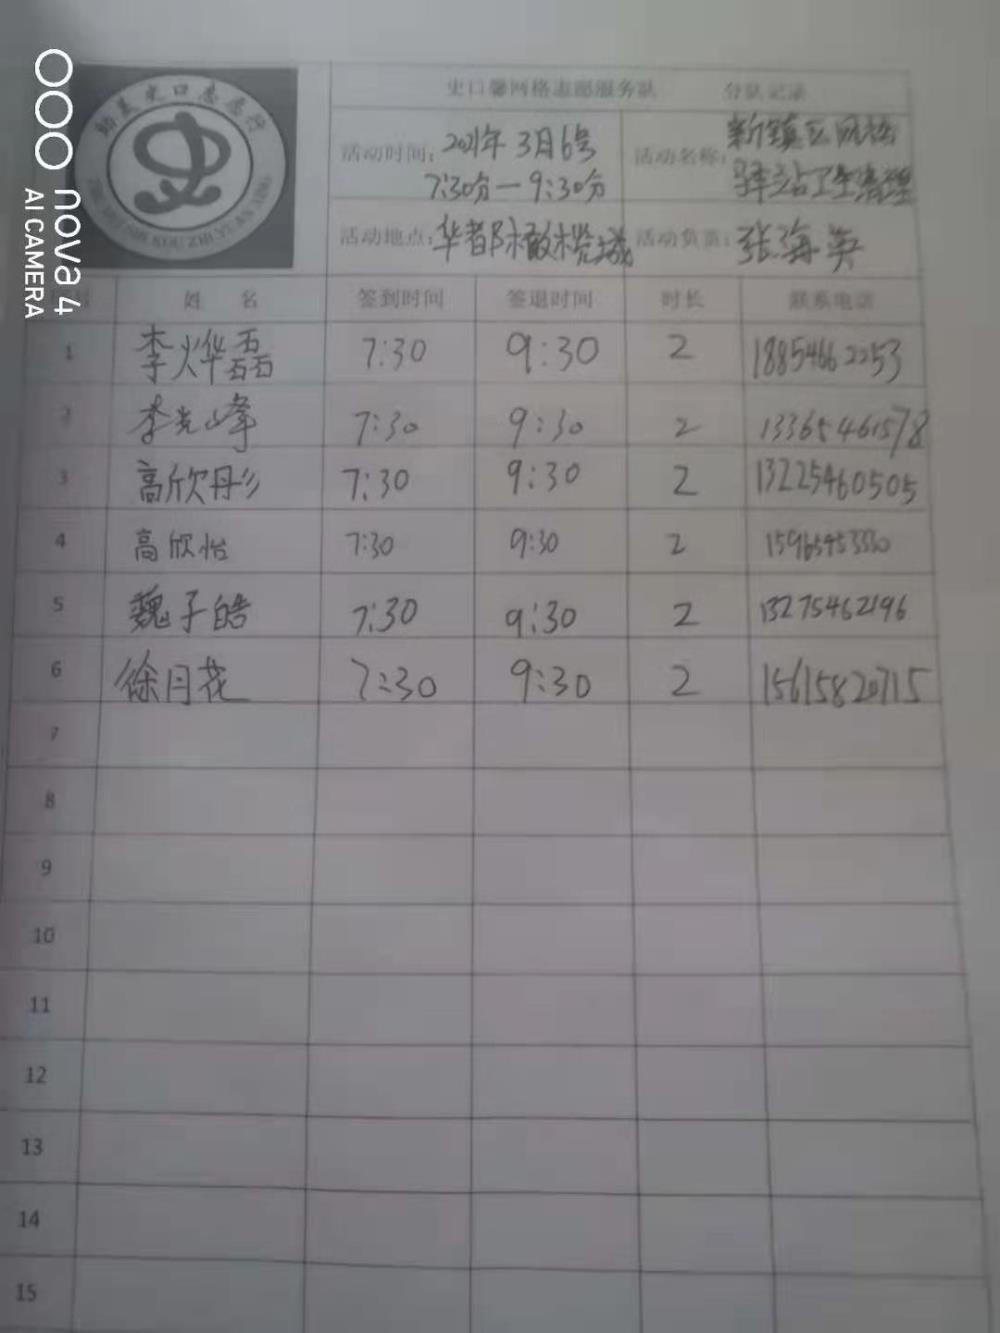 史口馨网格志愿服务队 分队记录
活动时间: 2021年 3月6号
7:30分—9:30分
活动名称: 新镇区
驿站卫生清理
活动地点: 华都 橄榄城
活动负责: 张海英
姓 名 签到时间 签退时间 时长 联系电话
1 李烨磊 7:30 9:30 2 18854662253
2 李光峰 7:30 9:30 2 13365461578
3 高欣彤 7:30 9:30 2 13225460505
4 高欣怡 7:30 9:30 2
5 魏子皓 7:30 9:30 2 13275462196
6 徐月花 7:30 9:30 2 15615820715
7
8
9
10
11
12
13
14
15
nova 4
AI CAMERA